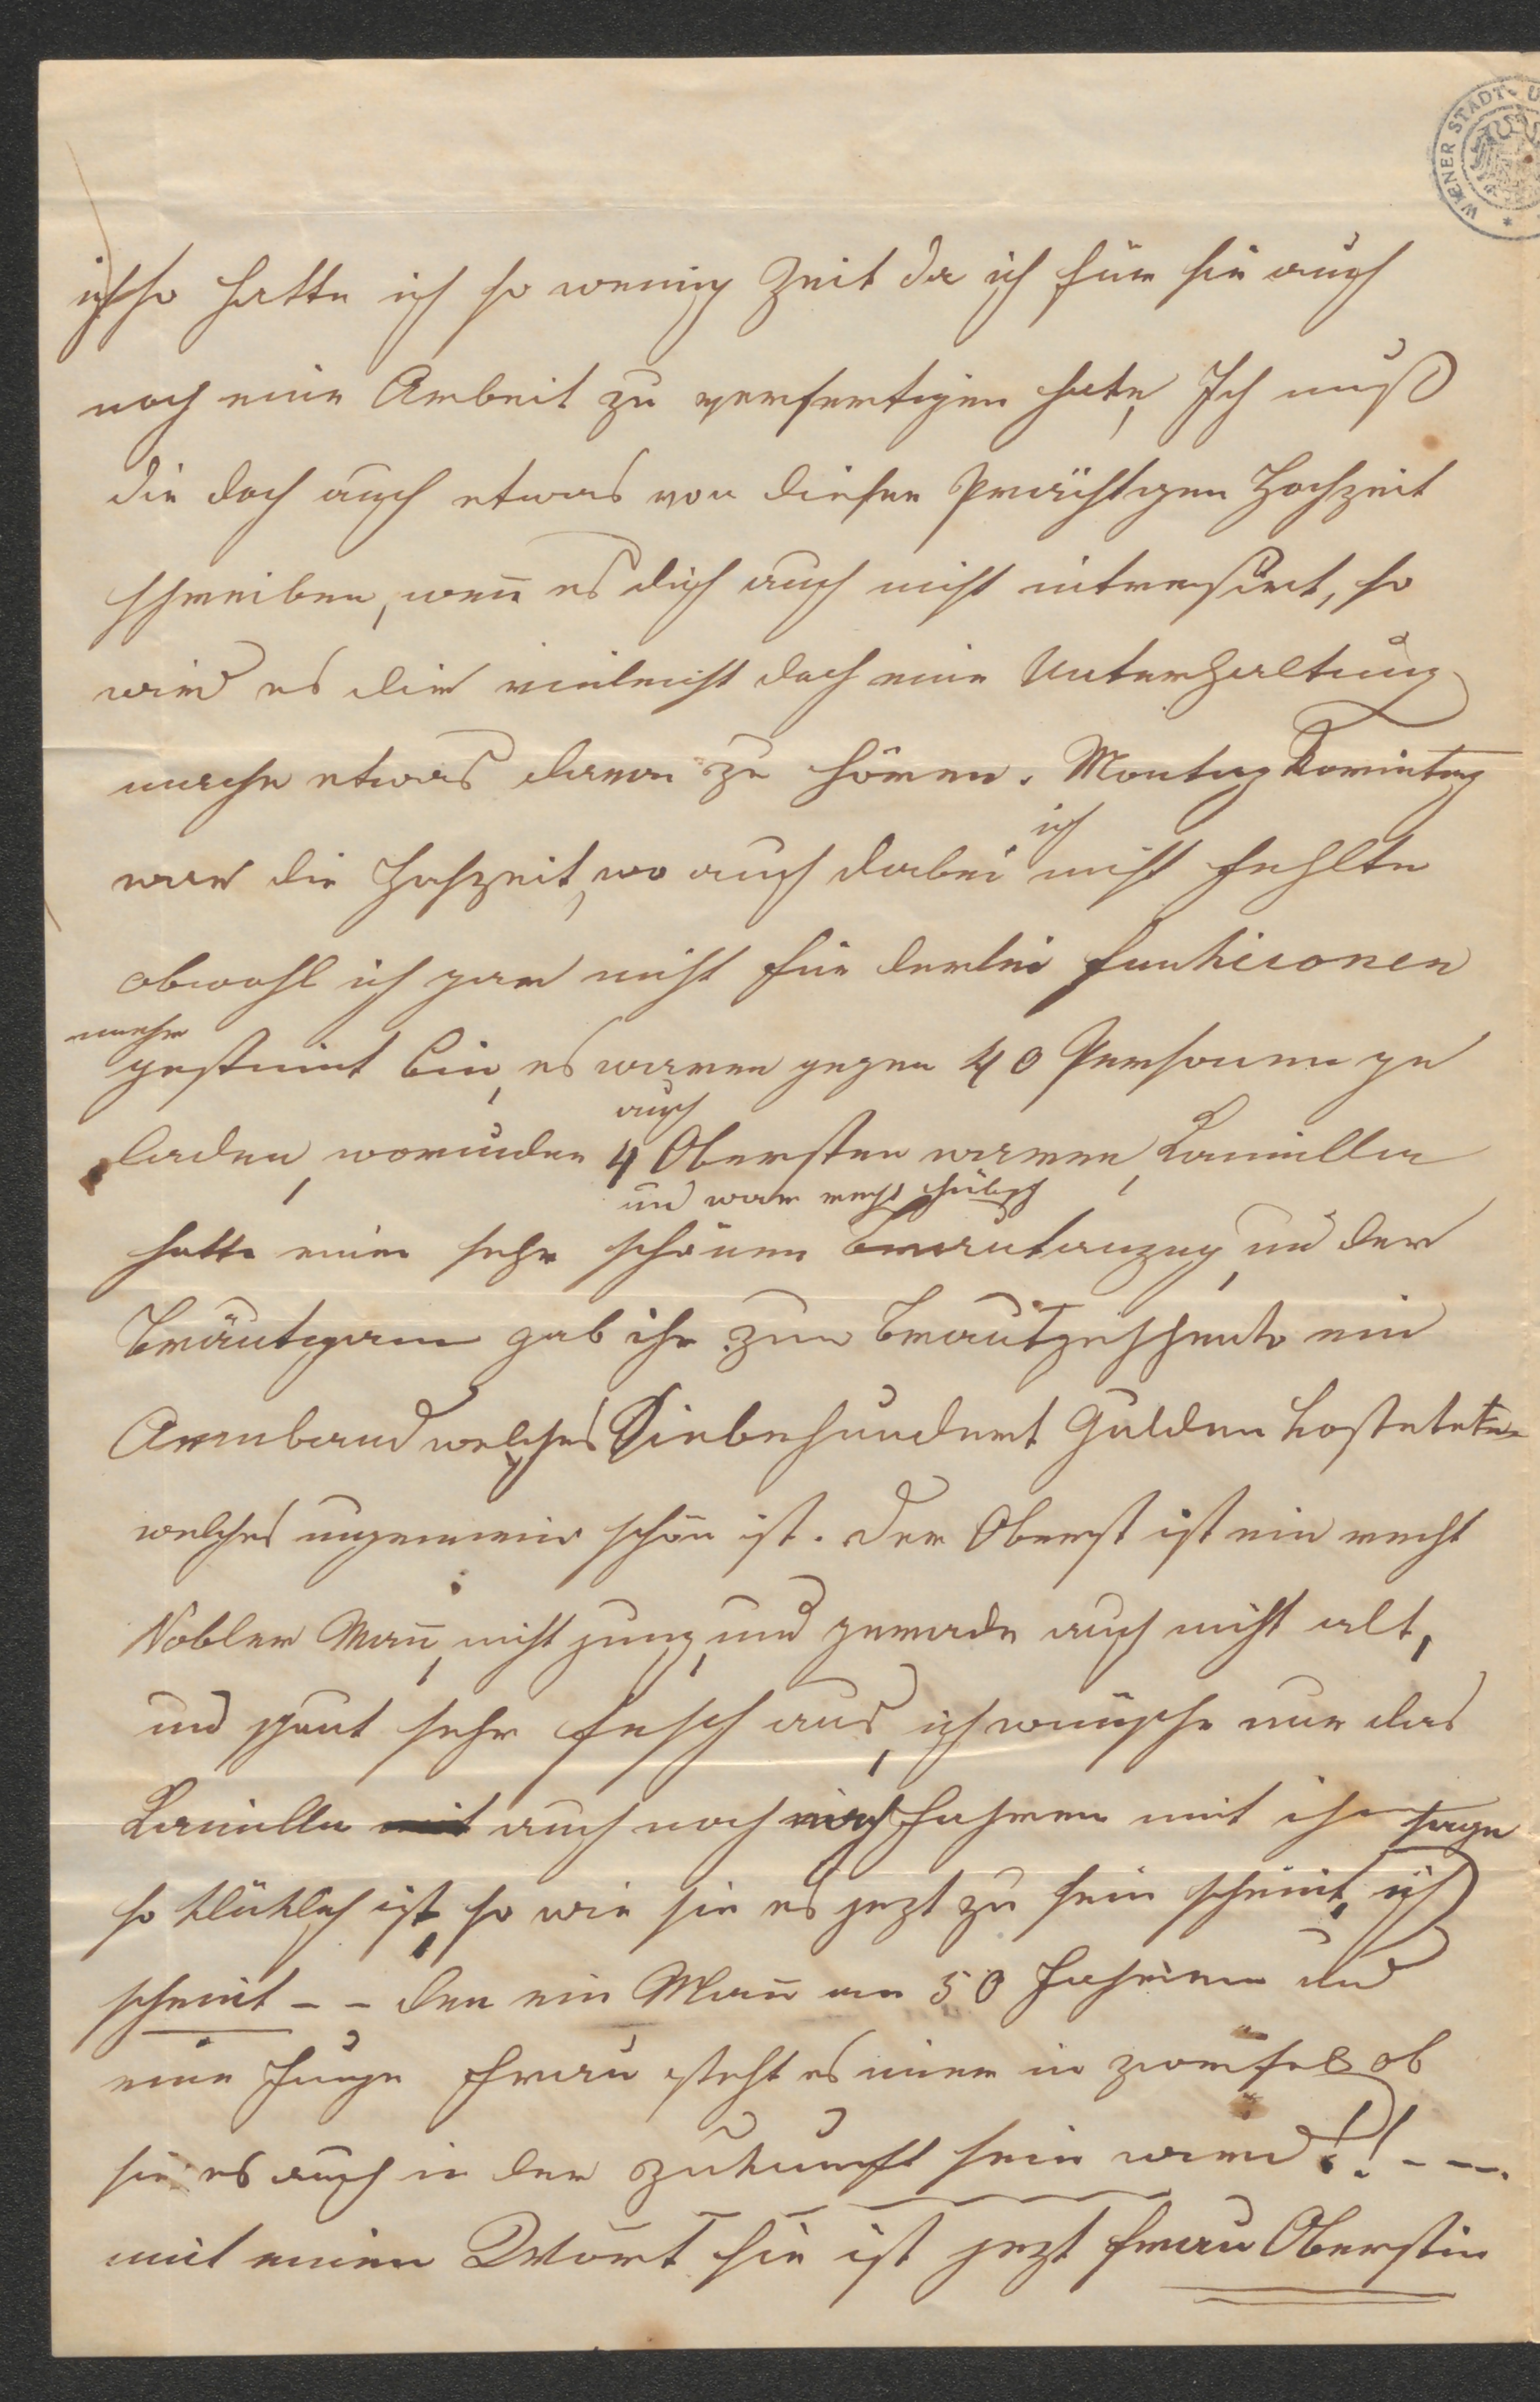 WIENER STADT- U
so hatte ich so wenig Zeit da ich für sie auch
noch eine Arbeit zu verfertigen hate, Ich muß
dir doch auch etwas von dieser Prächtigen Hochzeit
schreiben, wen̅ es dich auch nicht intressirt, so
wird es dir vieleicht doch eine Unterhaltung
mache etwas davon zu hören. Montag
war die Hochzeit, wo auch dabei ich nicht fehlte
obwohl ich gar nicht für derlei funkcionen
mehr gestimt bin, es waren gegen 40 Personen ge
laden, worunder auch 4 Obersten waren, Kamilla
hatte einen sehr schönen Brautanzug, und war recht hübsch un̅ der
Bräutigam gab ihr zum Brautgeschenk ein
Armband welches Siebehundert Gulden kostete
welches ungemein schön ist. Der Oberst ist ein recht
Nobler Man̅, nicht jung, und gerade auch nicht alt,
und schaut sehr fesch aus, ich wünsche nur das
Kamilla auch noch nach Jahren mit ihm
so klüklich ist, so wie sie es jezt zu sein scheint, ich sage
scheint - - den ein Man̅ an 50 Jahren und
eine Junge Frau steht es mir in zweifel ob
sie es auch in der zukunft sein wird!! - - -
mit einen Wort sie ist jezt Frau Oberstin